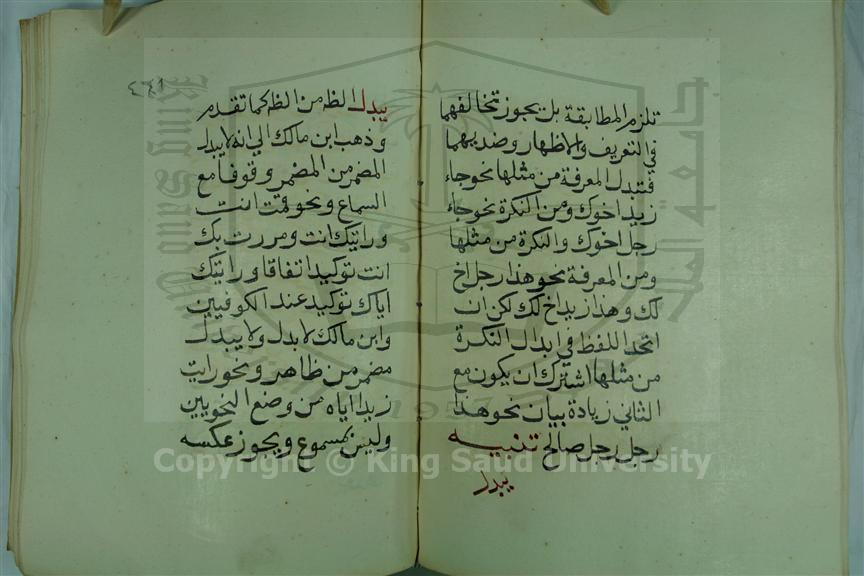 تلزم المطابقة بل يجوز تخالفهما
في التعريف والاظهار وضديهما
فتبدل المعرفة من مثلها نحو جاء
زيد اخوك ومن النكرة نحو جاء
رجل اخوك والنكرة من مثلها
ومن المعرفة نحو هذا رجل اخ
لك وهذا زيد اخ لك لكن ان
اتحد اللفظ في ابدال النكرة
من مثلها اشترك ان يكون مع
الثاني زيادة بيان نحو هذا
رجل رجل صالح تنبيه
يبدل
٤٤١
يبدل الظ من الظ كما تقدم
وذهب ابن مالك الي انه لا يبدل
المضمر من المضمر وقوفا مع
السماع ونحو قمت انت
ورايتك انت ومررت بك
انت توكيد اتفاقا ورايتك
اياك توكيد عند الكوفيين
وابن مالك لا بدل ولا يبدل
مضمر من ظاهر ونحو رايت
زيدا اياه من وضع النحويين
وليس بمسموع ويجوز عكسه
جامعة الملك سعود
King Saud University
1957
Copyright © King Saud University